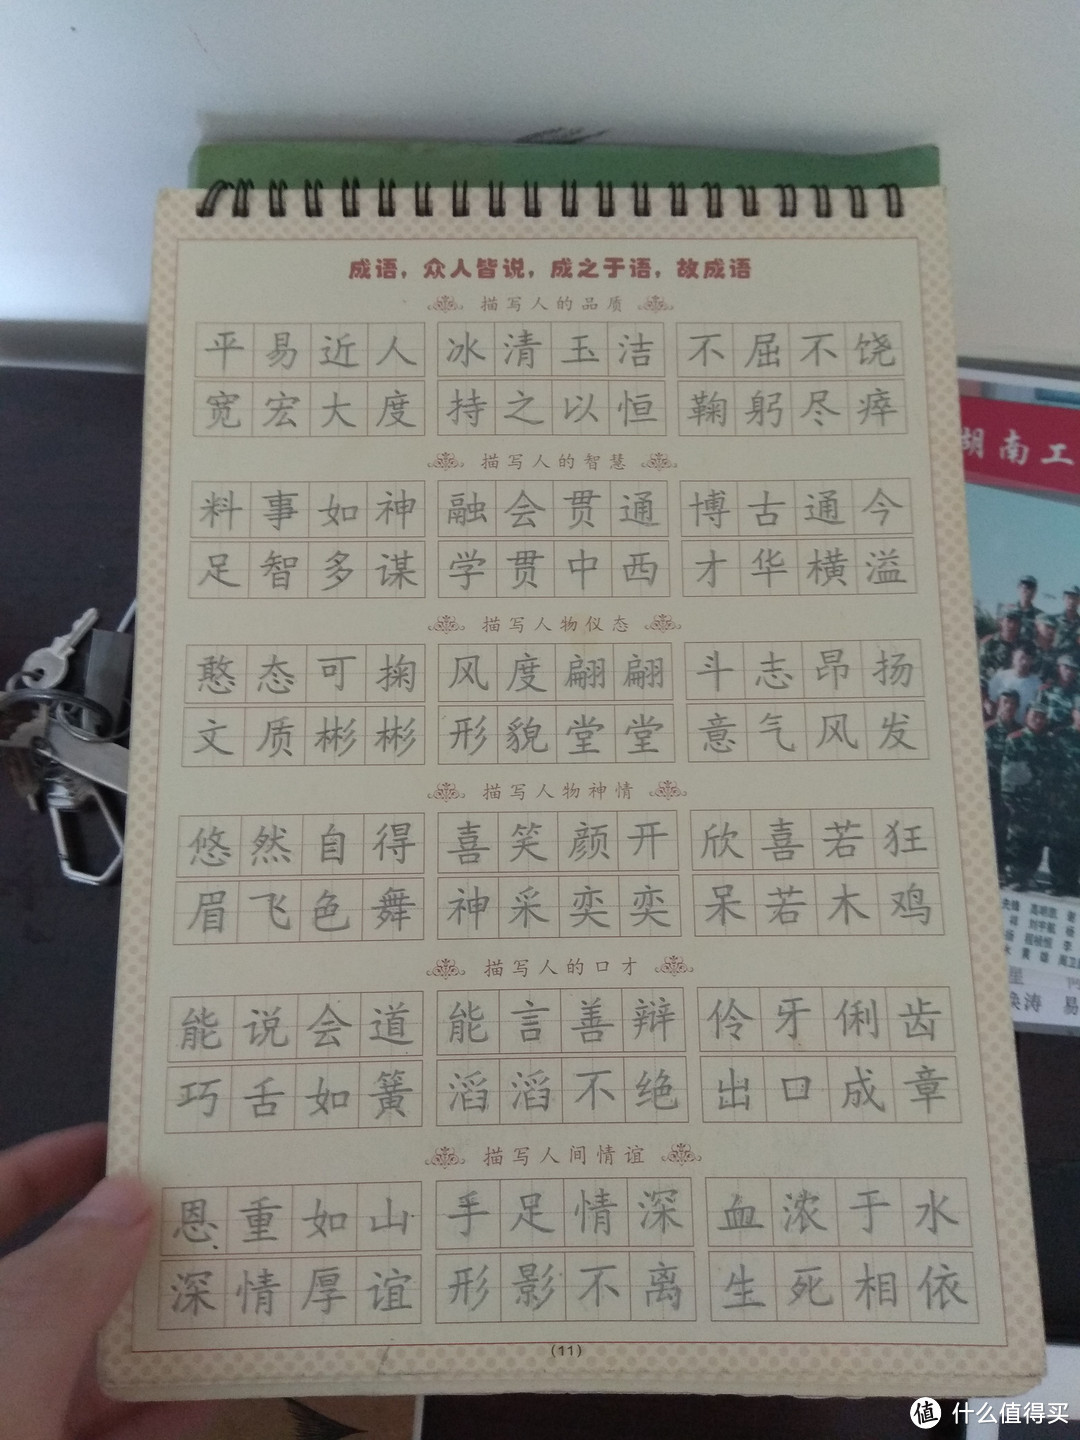 成语，众人皆说，成之于语，故成语
描写人的品质
平易近人 冰清玉洁 不屈不饶
宽宏大度 持之以恒 鞠躬尽瘁
描写人的智慧
料事如神 融会贯通 博古通今
足智多谋 学贯中西 才华横溢
描写人物仪态
憨态可掬 风度翩翩 斗志昂扬
文质彬彬 形貌堂堂 意气风发
描写人物神情
悠然自得 喜笑颜开 欣喜若狂
眉飞色舞 神采奕奕 呆若木鸡
描写人的口才
能说会道 能言善辩 伶牙俐齿
巧舌如簧 滔滔不绝 出口成章
描写人间情谊
恩重如山 手足情深 血浓于水
深情厚谊 形影不离 生死相依
(11)
湖南工
值 什么值得买